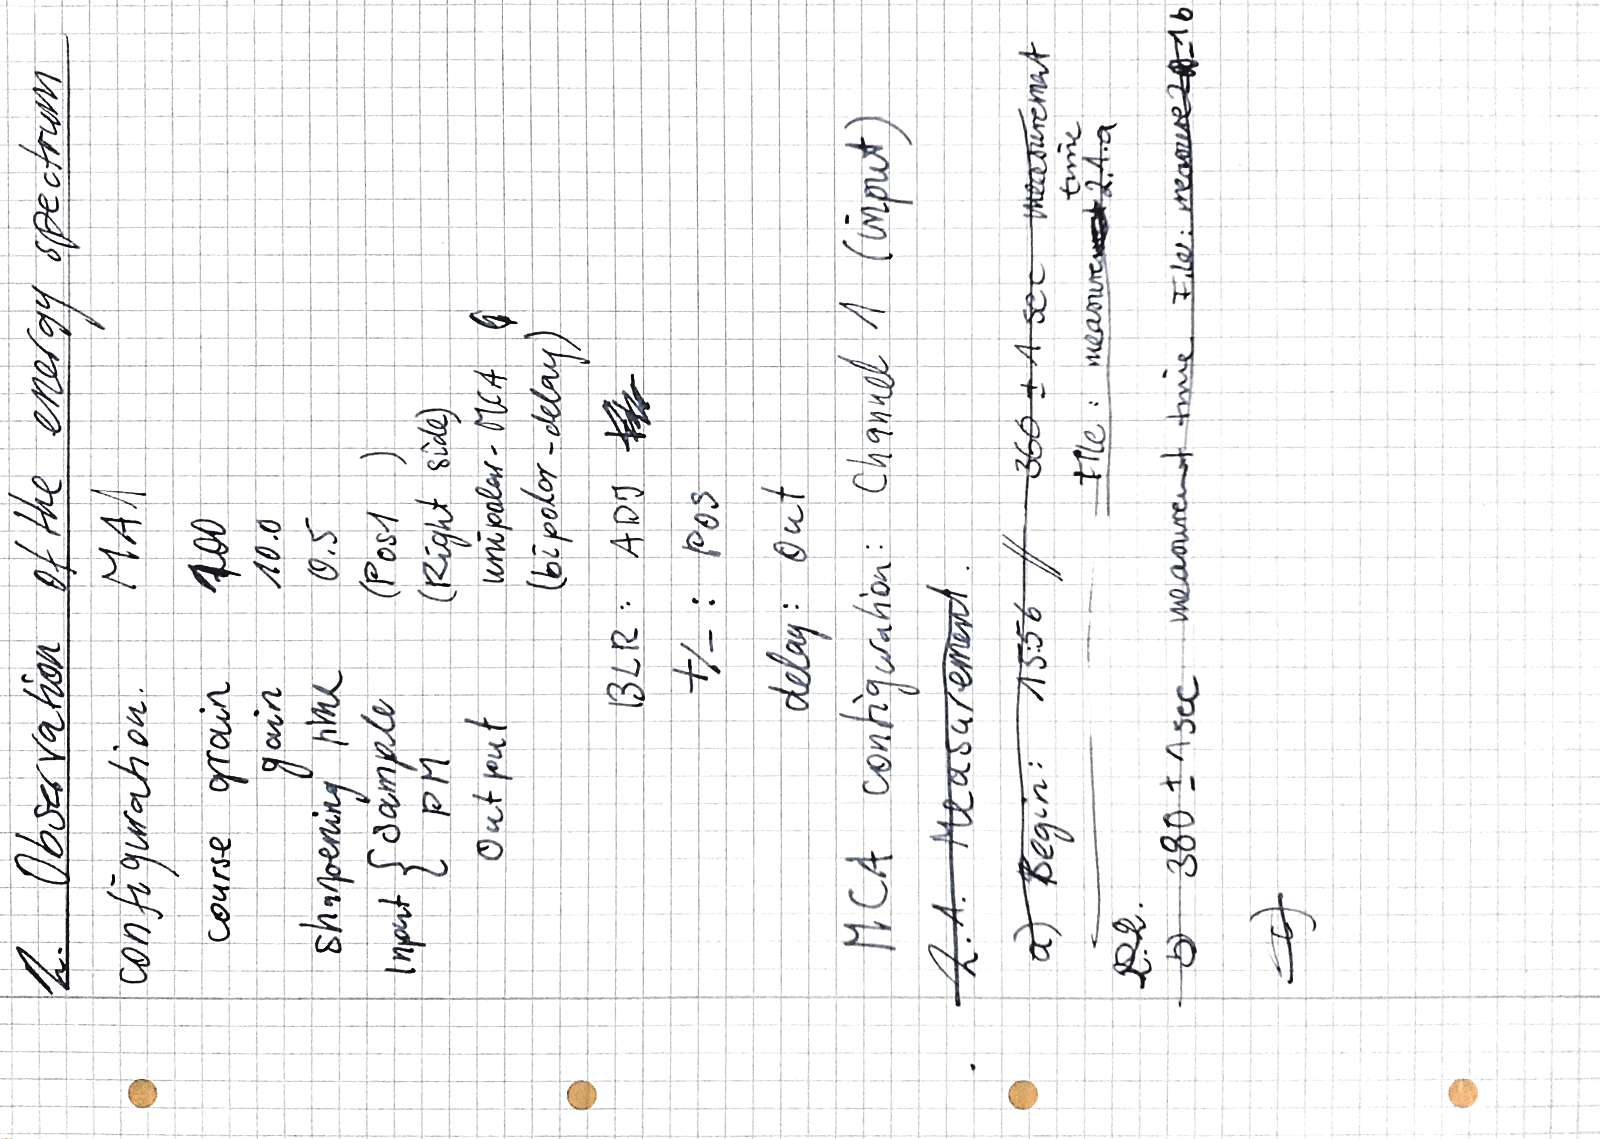 2. Observation of the energy spectrum
configuration. MA1
course grain 100
gain 10.0
sharpening time 0.5
Input { Sample (Pos1)
PM (Right side)
Output unipolar - MCA
(bipolar - delay)
BLR: ADJ
+/-: Pos
delay: Out
MCA configuration: Channel 1 (input)
2.1. Measurement.
a) Begin: 15:56 // 360 ± 1 sec measurement
time
File: measurement 2.1.a
2.2.
b) 380 ± 1 sec measurement time File: measure